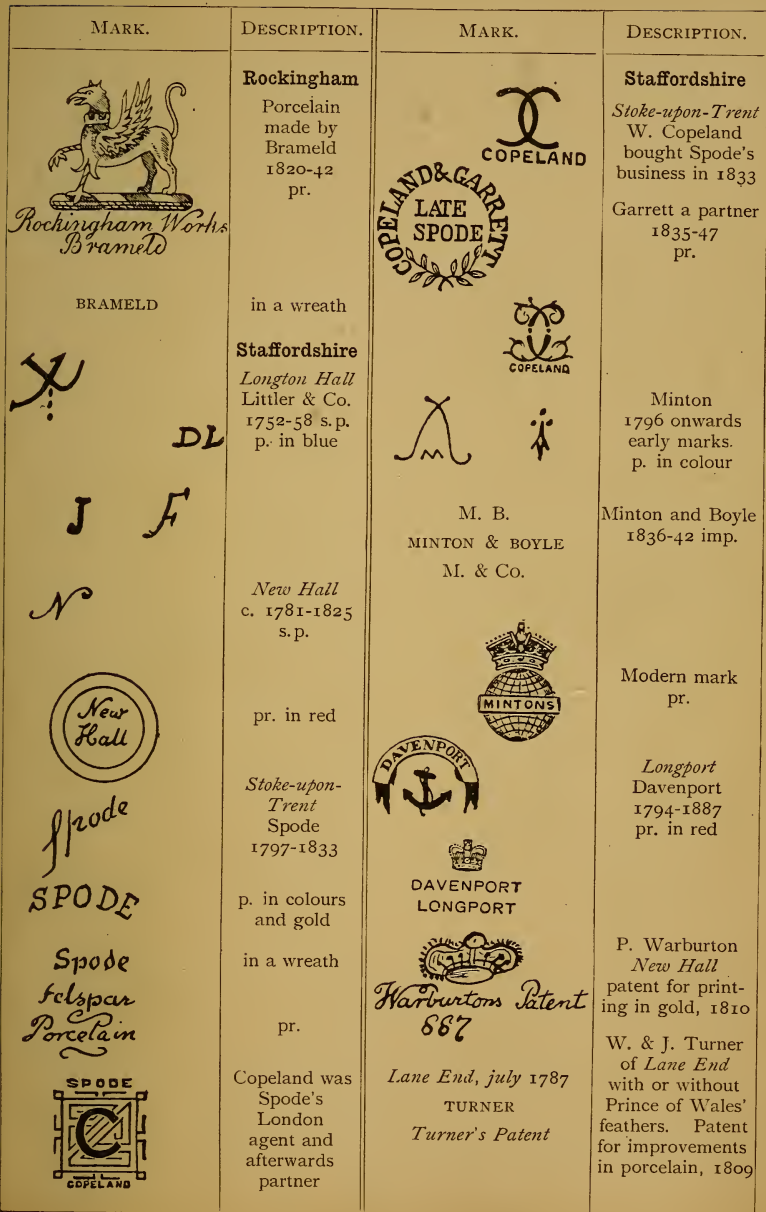 MARK.
DESCRIPTION.
Rockingham
Porcelain
made by
Brameld
1820-42
pr.
Rockingham Works
Brameld
BRAMELD
in a wreath
Staffordshire
Longton Hall
Littler & Co.
1752-58 s.p.
p. in blue
DL
J F
N
New Hall
c. 1781-1825
s.p.
New
Hall
pr. in red
Stoke-upon-
Trent
Spode
1797-1833
Spode
SPODE
p. in colours
and gold
Spode
in a wreath
Felspar
Porcelain
pr.
SPODE
C
COPELAND
Copeland was
Spode's
London
agent and
afterwards
partner
MARK.
DESCRIPTION.
Staffordshire
Stoke-upon-Trent
W. Copeland
bought Spode's
business in 1833
COPELAND
COPELAND & GARRETT
LATE
SPODE
Garrett a partner
1835-47
pr.
COPELAND
M
Minton
1796 onwards
early marks.
p. in colour
M. B.
MINTON & BOYLE
M. & Co.
Minton and Boyle
1836-42 imp.
MINTONS
Modern mark
pr.
DAVENPORT
Longport
Davenport
1794-1887
pr. in red
DAVENPORT
LONGPORT
Warburtons Patent
667
P. Warburton
New Hall
patent for print-
ing in gold, 1810
Lane End, july 1787
TURNER
Turner's Patent
W. & J. Turner
of Lane End
with or without
Prince of Wales'
feathers. Patent
for improvements
in porcelain, 1809